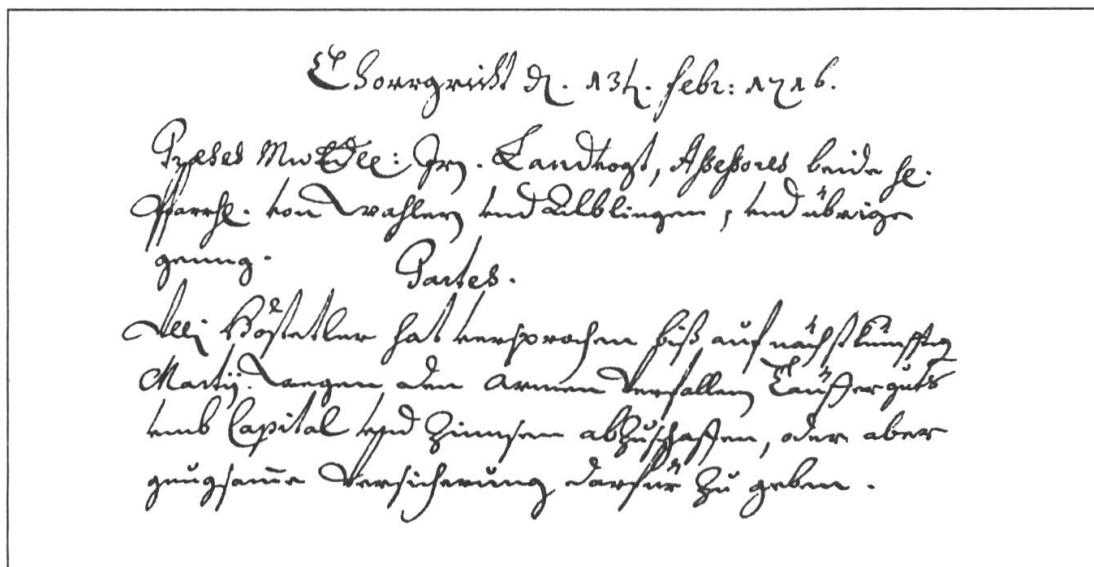 Chorrgricht d. 13t. Febr: 1716.
Præses Mw: Jr. Landtvogt, Assessores beide H.
Pfarrh. von Wahleren und Albligen, und übrige
gnug.
Partes.
Ulli Hostetler hat versprochen biß auf nächstkünfftig
Martij. wegen den Armen verfallen Taüffer guts
umb Capital und Zinnsen abzuschaffen, oder aber
gnugsamme versicherung darfür zu geben.